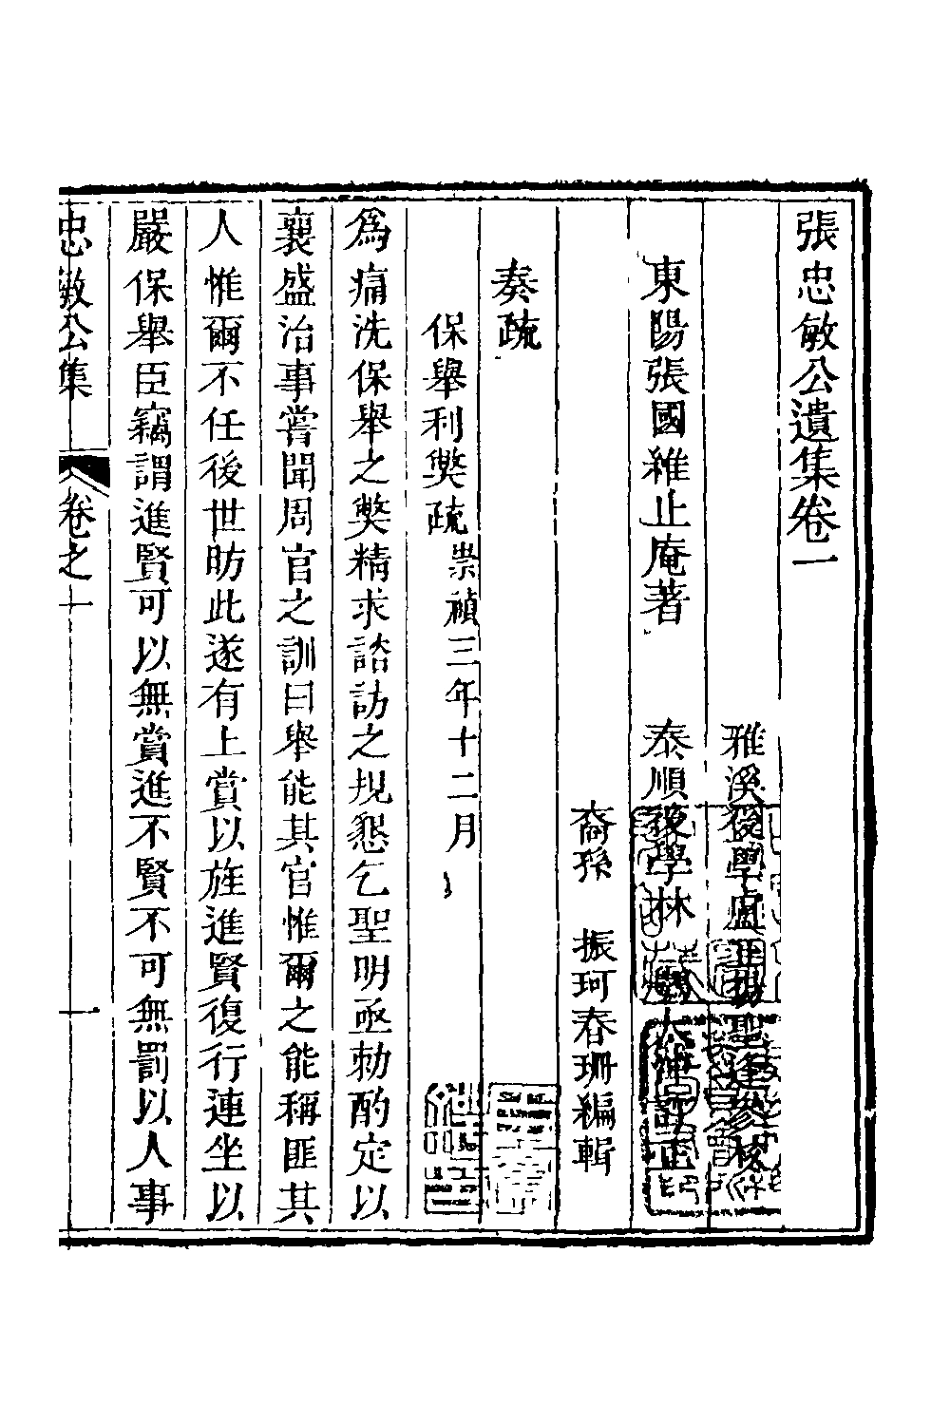 張忠敏公遺集卷一
雅溪後學盧正 聖逢參校
東陽張國維止庵著 泰順後學林鶚太沖訂正
裔孫 振珂春珊編輯
奏疏
保舉利獘疏崇禎三年十二月
爲痛洗保舉之獘精求諮訪之規懇乞聖明亟勅酌定以
襄盛治事嘗聞周官之訓曰舉能其官惟爾之能稱匪其
人惟爾不任後世昉此遂有上賞以旌進賢復行連坐以
嚴保舉臣竊謂進賢可以無賞進不賢不可無罰以人事
忠敏公集 卷之一 一